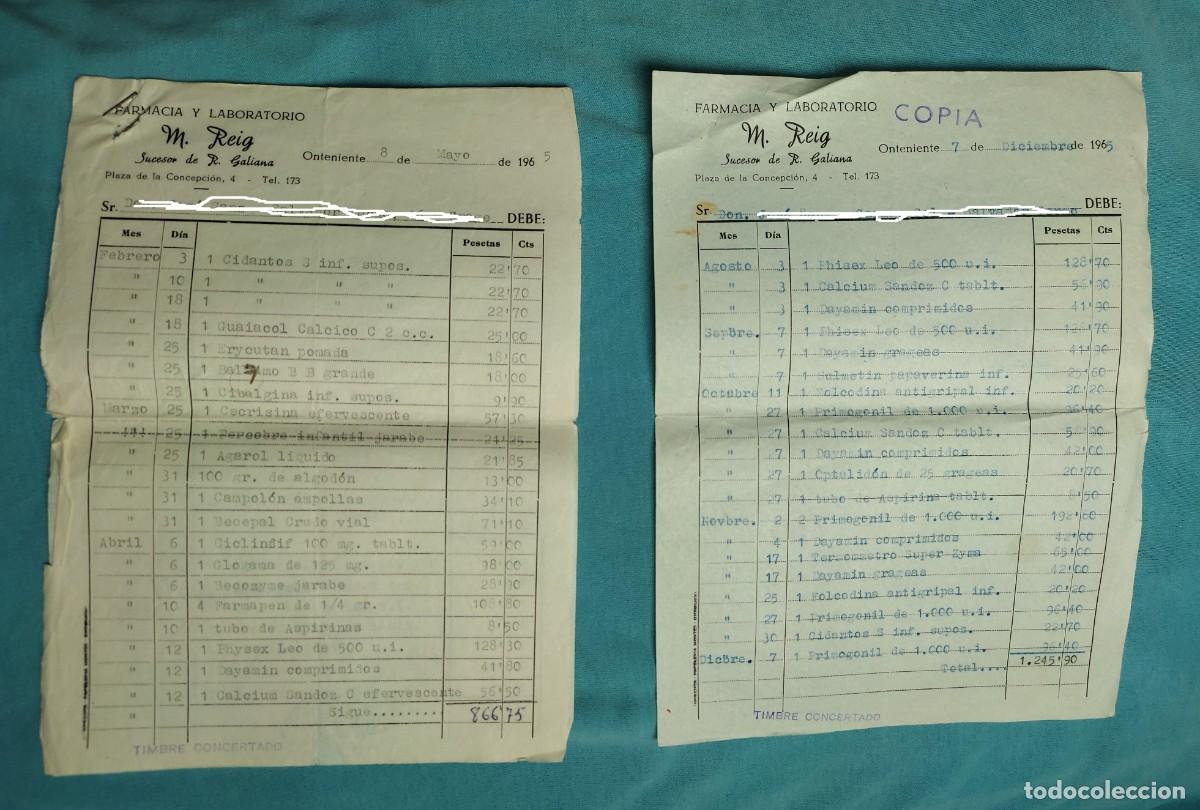 FARMACIA Y LABORATORIO
M. Reig
Sucesor de R. Galiana
Onteniente 8 de Mayo de 1965
Plaza de la Concepción, 4 - Tel. 173
Sr. DEBE:
Mes Día Pesetas Cts
Febrero 3 1 Cidantos S inf. supos. 22'70
" 10 1 " " " 22'70
" 18 1 " " 22'70
" 18 1 Guaiacol Calcico C 2 c.c. 25'00
" 25 1 Erycutan pomada 18'60
" 25 1 B B grande 18'00
" 25 1 Cibalgina inf. supos. 9'90
Marzo 25 1 Cecrisina efervescente 57'30
25 1 Fercobre infantil jarabe 24'25
" 25 1 Agarol liquido 21'85
" 31 100 gr. de algodón 13'00
" 31 1 Campolón ampollas 34'10
" 31 1 Becepal Crudo vial 71'10
Abril 6 1 100 mg. tablt. 59'00
" 6 1 Glogama de 125 mg. 98'00
" 6 1 Becozyme jarabe 28'90
" 10 4 Farmapen de 1/4 gr. 108'80
" 10 1 tubo de Aspirinas 8'50
" 12 1 Physex Leo de 500 u.i. 128'30
" 12 1 Dayamin comprimidos 41'80
" 12 1 Calcium Sandoz C efervescente 56'50
" Sigue........ 866'75
TIMBRE CONCERTADO
FARMACIA Y LABORATORIO
COPIA
M. Reig
Sucesor de R. Galiana
Onteniente 7 de Diciembre de 1965
Plaza de la Concepción, 4 - Tel. 173
Sr. Don. DEBE:
Mes Día Pesetas Cts
Agosto 3 1 Phisex Leo de 500 u.i. 128'70
" 3 1 Calcium Sandoz C tablt. 56'90
" 3 1 Dayamin comprimidos 41'90
Sepbre. 7 1 Phisex Leo de 500 u.i. 128'70
" 7 1 Dayamin grageas 41'90
" 7 1 Sulmetin papaverina inf. 25'60
Octubre 11 1 Folcodina antigripal inf. 20'20
" 27 1 Primogonil de 1.000 u.i. 96'40
" 27 1 Calcium Sandoz C tablt. 56'90
" 27 1 Dayamin comprimidos 42'00
" 27 1 Optalidón de 25 grageas 20'70
" 27 1 tubo de Aspirina tablt. 8'50
Novbre. 2 2 Primogonil de 1.000 u.i. 192'80
" 4 1 Dayamin comprimidos 42'00
" 17 1 Termommetro Super Zyma 65'00
" 17 1 Dayamin grageas 42'00
" 25 1 Folcodina antigripal inf. 20'20
" 27 1 Primogonil de 1.000 u.i. 96'40
" 30 1 Cidantos S inf. supos. 22'70
Dicbre. 7 1 Primogonil de 1.000 u.i. 96'40
Total.... 1.245'90
TIMBRE CONCERTADO
todocoleccion